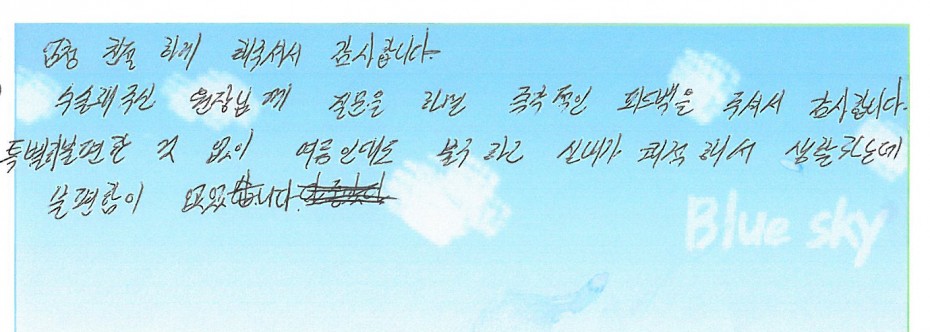 엄청 친절 하게 해주셔서 감사합니다.
수술해 주신 원장님 께 질문을 하면 즉각 적인 피드백을 주셔서 감사합니다.
특별히 불편한 것 없이 여름인데도 불구 하고 실내가 쾌적 해서 생활 하는데
불편함이 없었습니다.
Blue sky